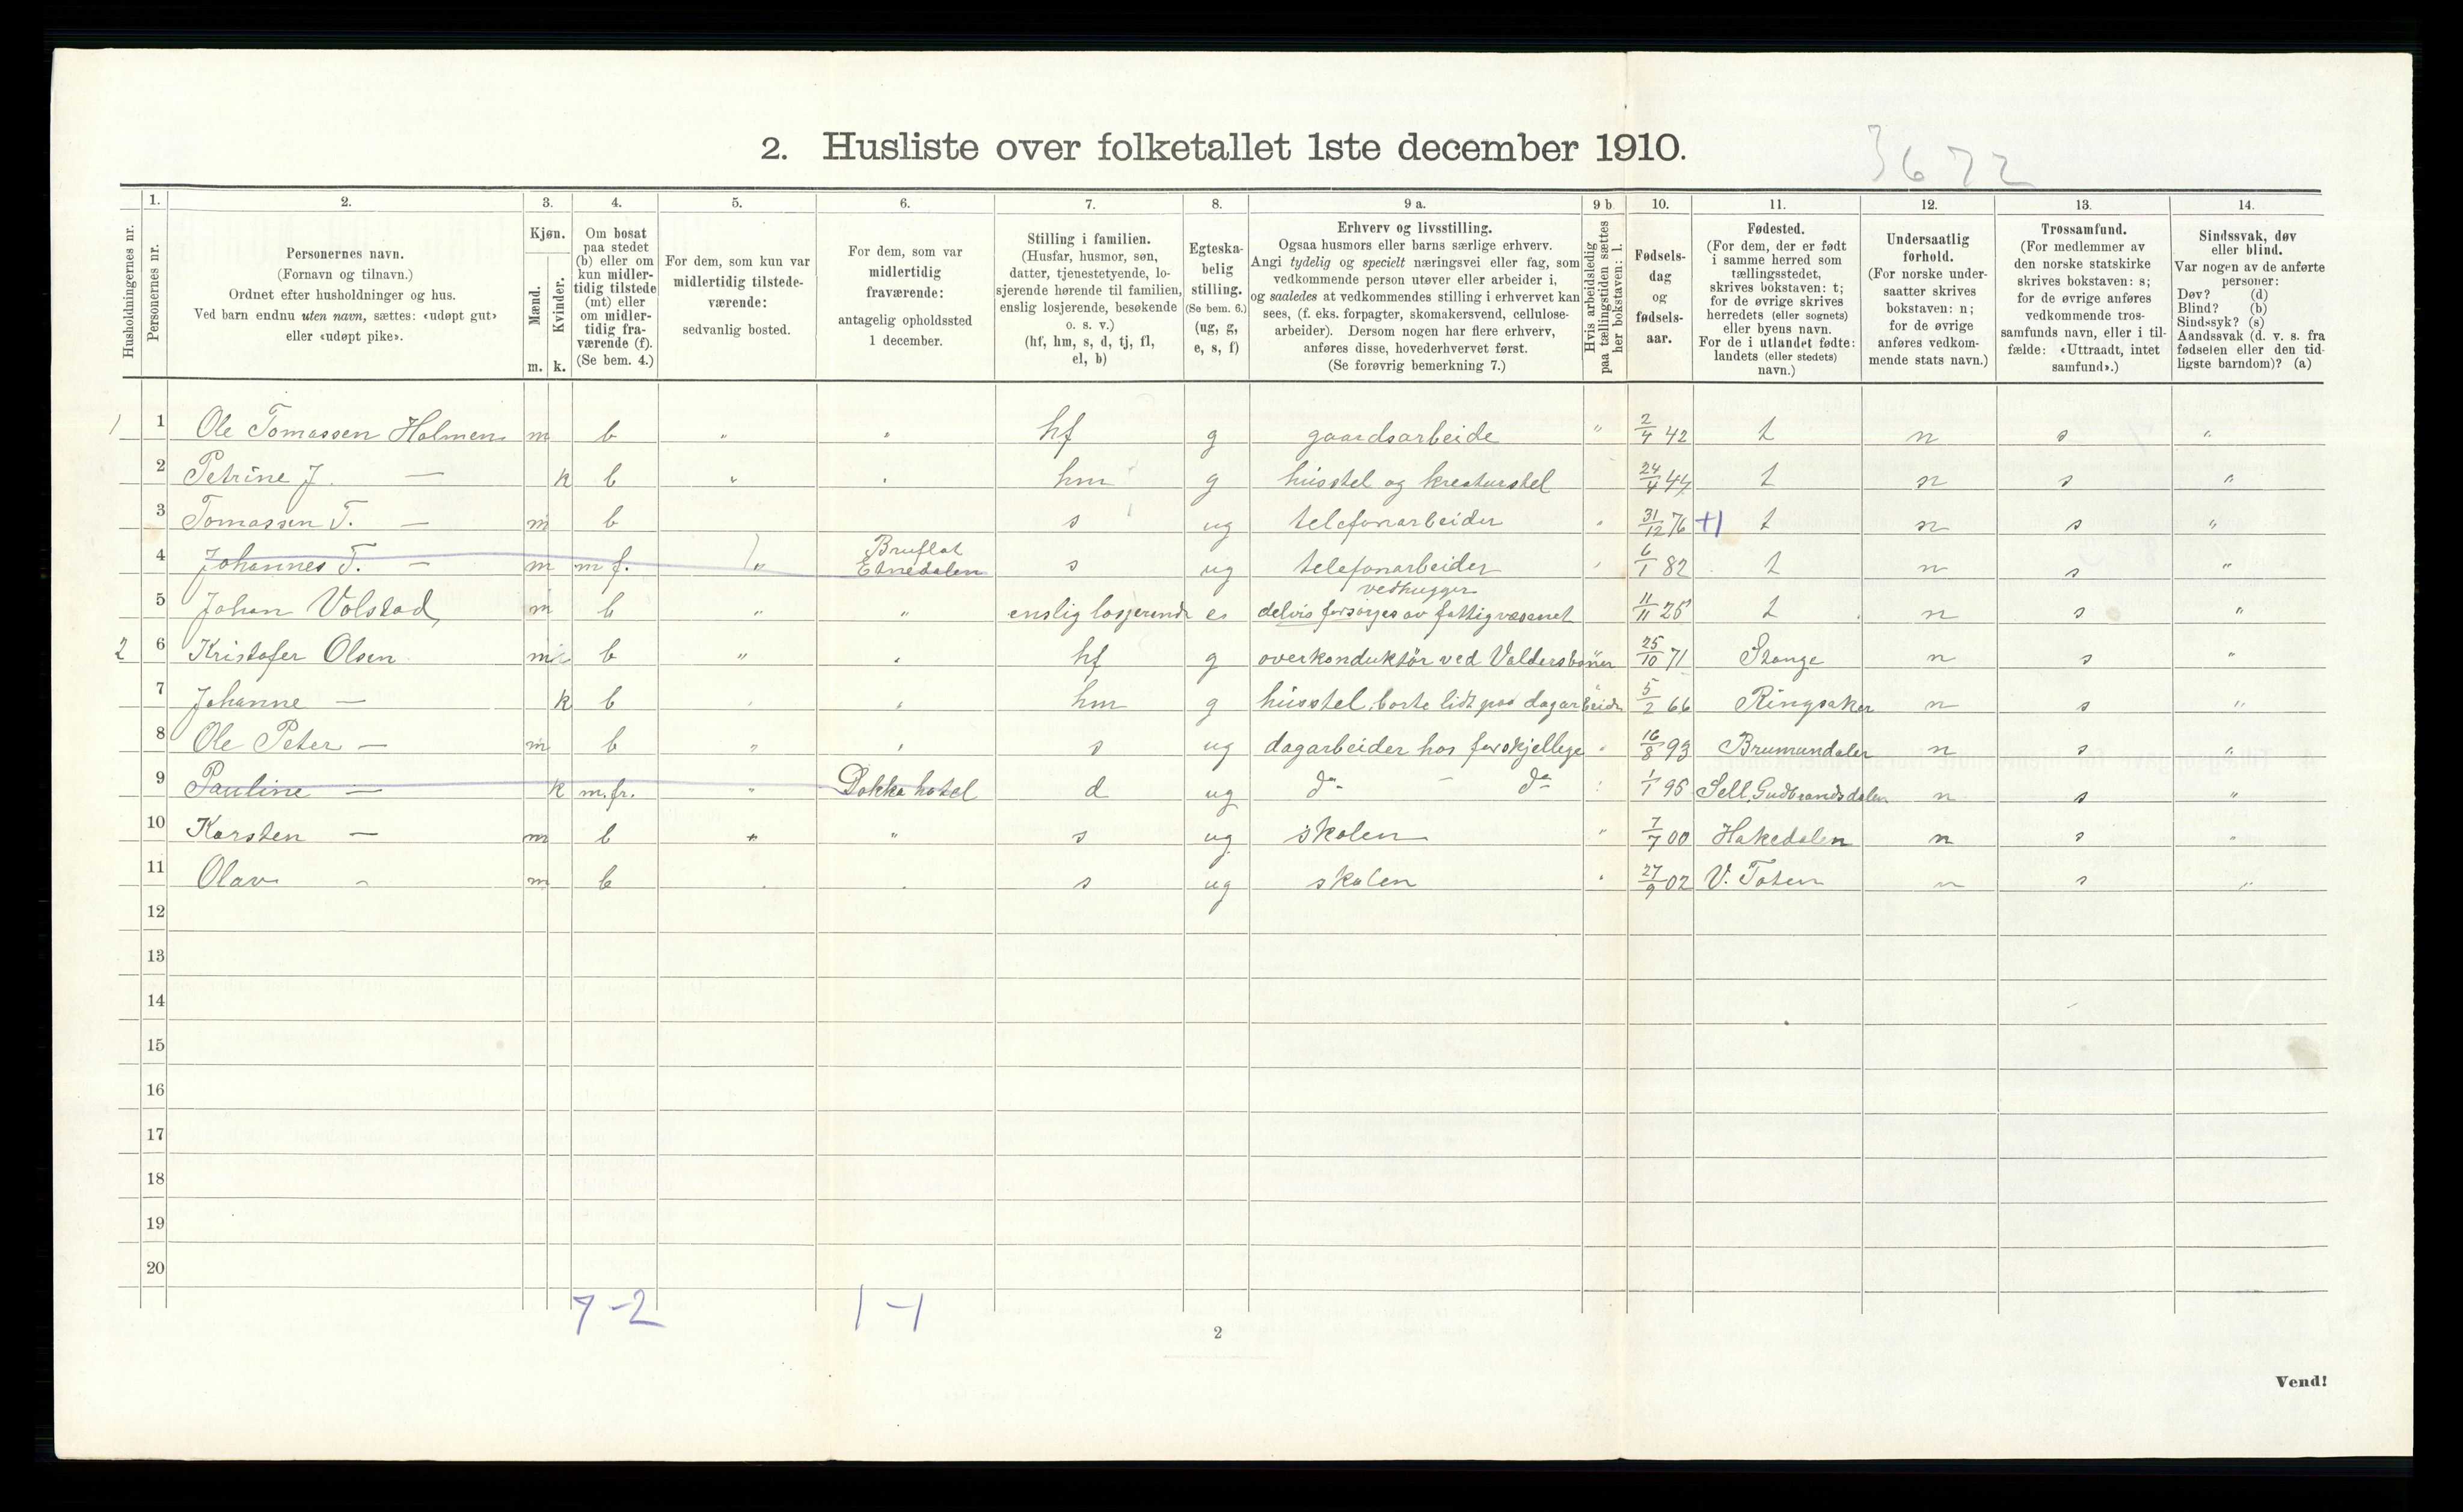 2. Husliste over folketallet 1ste december 1910.
3672
1. 2. 3. 4. 5. 6. 7. 8. 9 a. 9 b. 10. 11. 12. 13. 14.
Husholdningernes nr.
Personernes nr.
Personernes navn.
(Fornavn og tilnavn.)
Ordnet efter husholdninger og hus.
Ved barn endnu uten navn, sættes: «udøpt gut»
eller «udøpt pike».
Kjøn.
Mænd.
Kvinder.
m. k.
Om bosat
paa stedet
(b) eller om
kun midler-
tidig tilstede
(mt) eller
om midler-
tidig fra-
værende (f).
(Se bem. 4.)
For dem, som kun var
midlertidig tilstede-
værende:
sedvanlig bosted.
For dem, som var
midlertidig
fraværende:
antagelig opholdssted
1 december.
Stilling i familien.
(Husfar, husmor, søn,
datter, tjenestetyende, lo-
sjerende hørende til familien,
enslig losjerende, besøkende
o. s. v.)
(hf, hm, s, d, tj, fl,
el, b)
Egteska-
belig
stilling.
(Se bem. 6.)
(ug, g,
e, s, f)
Erhverv og livsstilling.
Ogsaa husmors eller barns særlige erhverv.
Angi tydelig og specielt næringsvei eller fag, som
vedkommende person utøver eller arbeider i,
og saaledes at vedkommendes stilling i erhvervet kan
sees, (f. eks. forpagter, skomakersvend, cellulose-
arbeider). Dersom nogen har flere erhverv,
anføres disse, hovederhvervet først.
(Se forøvrig bemerkning 7.)
Hvis arbeidsledig
paa tællingstiden sættes
her bokstaven: l.
Fødsels-
dag
og
fødsels-
aar.
Fødested.
(For dem, der er født
i samme herred som
tællingsstedet,
skrives bokstaven: t;
for de øvrige skrives
herredets (eller sognets)
eller byens navn.
For de i utlandet fødte:
landets (eller stedets)
navn.)
Undersaatlig
forhold.
(For norske under-
saatter skrives
bokstaven: n;
for de øvrige
anføres vedkom-
mende stats navn.)
Trossamfund.
(For medlemmer av
den norske statskirke
skrives bokstaven: s;
for de øvrige anføres
vedkommende tros-
samfunds navn, eller i til-
fælde: «Uttraadt, intet
samfund».)
Sindssvak, døv
eller blind.
Var nogen av de anførte
personer:
Døv? (d)
Blind? (b)
Sindssyk? (s)
Aandssvak (d. v. s. fra
fødselen eller den tid-
ligste barndom)? (a)
1 1 Ole Tomassen Holmen m b " " hf g gaardsarbeide " 2/4 42 t n s "
2 Petrine J. — k b " " hm g husstel og kreaturstel 24/4 44 t n s "
3 Tomassen T. — m b s ug telefonarbeider " 31/12 76 +1 t n s "
4 Johannes T. — m m f. " Bruflat Etnedalen s ug telefonarbeider " 6/1 82 t n s "
5 Johan Volstad m b " " enslig losjerende e vedhugger delvis forsørges av fattigvæsenet 11/11 25 t n s "
2 6 Kristofer Olsen m b " " hf g overkonduktör ved Valdersbanen 25/10 71 Stange n s "
7 Johanne — k b " " hm g husstel, borte lidt paa dagarbeide 5/2 66 Ringsaker n s "
8 Ole Peter — m b " " s ug dagarbeider hos forskjellige " 16/8 93 Brumundalen n s "
9 Pauline — k m.fr. " Dokka hotel d ug do — do " 1/1 95 Sell, Gudbrandsdalen n s "
10 Karsten — m b " " s ug skolen " 7/7 00 Hakedalen n s "
11 Olav — m b " " s ug skolen " 27/9 02 V. Toten n s "
12
13
14
15
16
17
18
19
20
7-2 1-1
2
Vend!